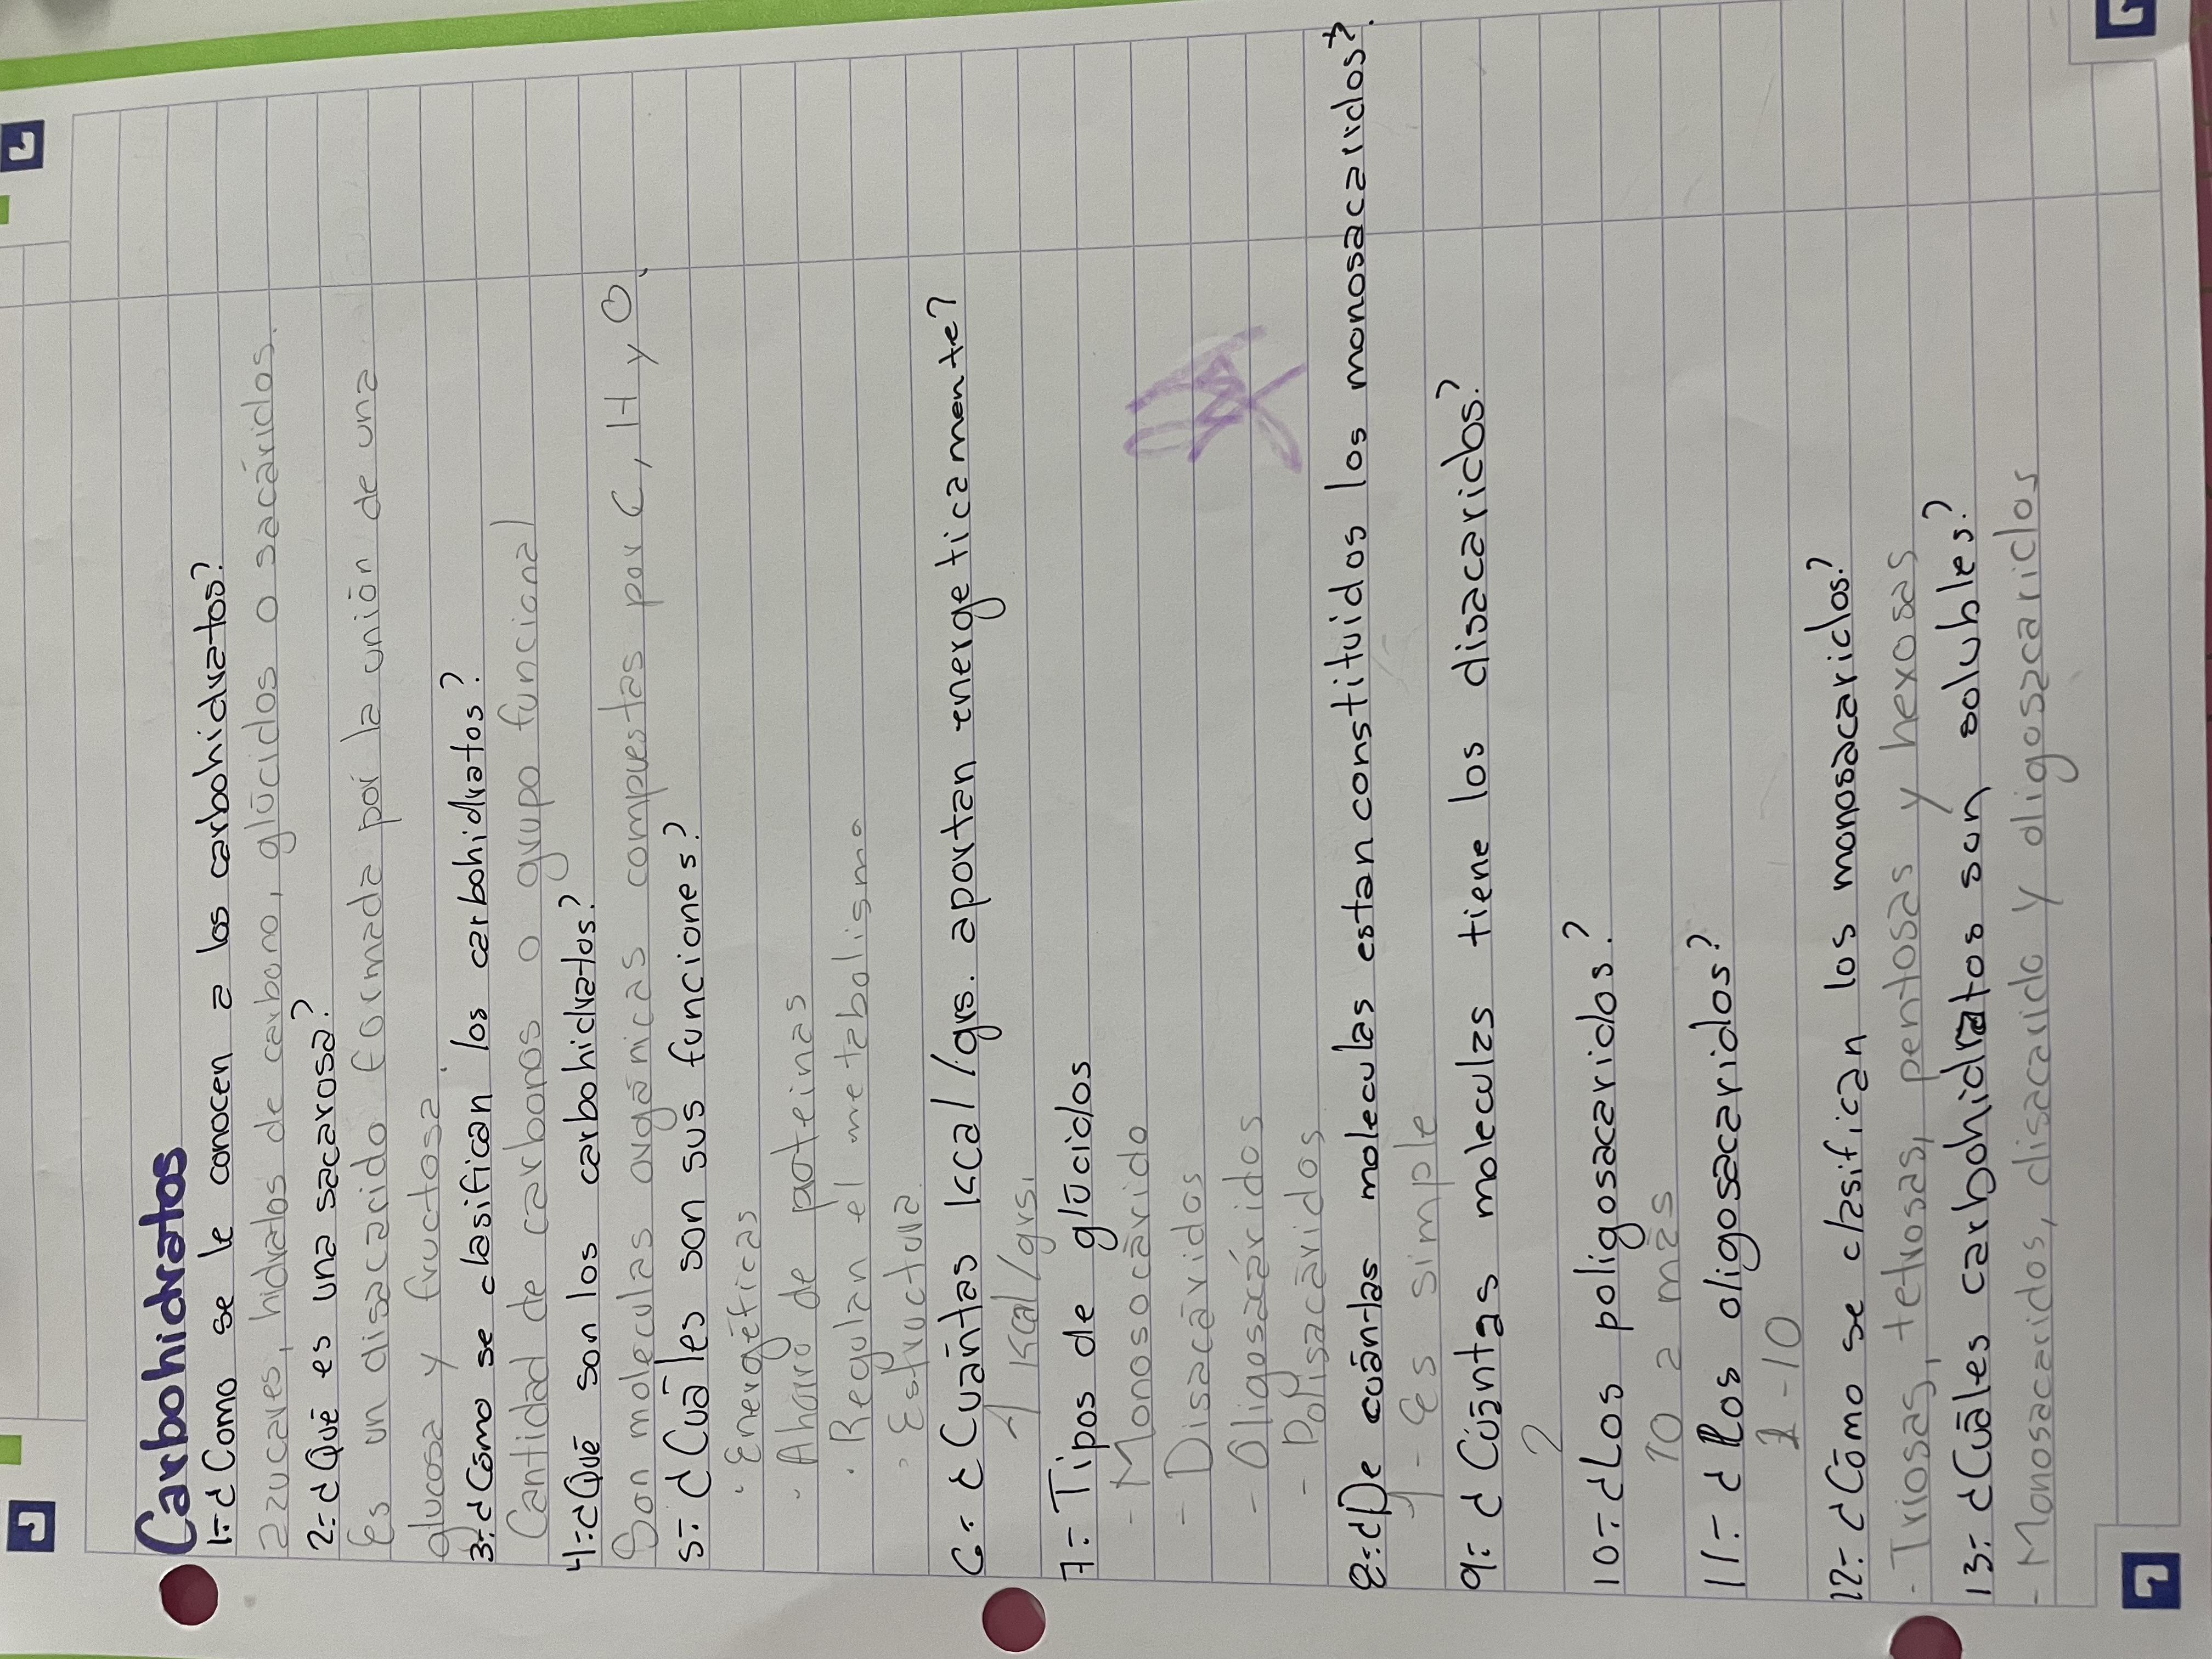 Carbohidratos
1.- ¿Como se le conocen a los carbohidratos?
azucares, hidratos de carbono, glúcidos o sacáridos.
2.- ¿Qué es una sacarosa?
Es un disacarido formada por la unión de una
glucosa y fructosa.
3.- ¿Cómo se clasifican los carbohidratos?
Cantidad de carbonos o grupo funcional
4.- ¿Qué son los carbohidratos?
Son moleculas orgánicas compuestas por C, H y O.
5.- ¿Cuáles son sus funciones?
· Energéticas
· Ahorro de proteinas
· Regulan el metabolismo
· Estructura
6.- ¿Cuántas kcal/grs. aportan energeticamente?
4 kcal/grs.
7.- Tipos de glúcidos
- Monosocárido
- Disacáridos
- Oligosacáridos
- Polisacáridos
8.- ¿De cuántas moleculas estan constituidos los monosacaridos?
1 - Es simple
9.- ¿Cuántas moleculas tiene los disacaridos?
2
10.- ¿Los poligosacaridos?
10 a más
11.- ¿Los oligosacaridos?
-10
12.- ¿Cómo se clasifican los monosacaridos?
- Triosas, tetrosas, pentosas y hexosas
13.- ¿Cuáles carbohidratos son solubles?
- Monosacaridos, disacarido y oligosacaridos